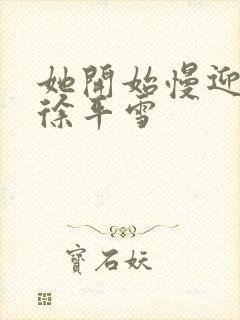 她開始慢迎
徐平雪
寶石妖